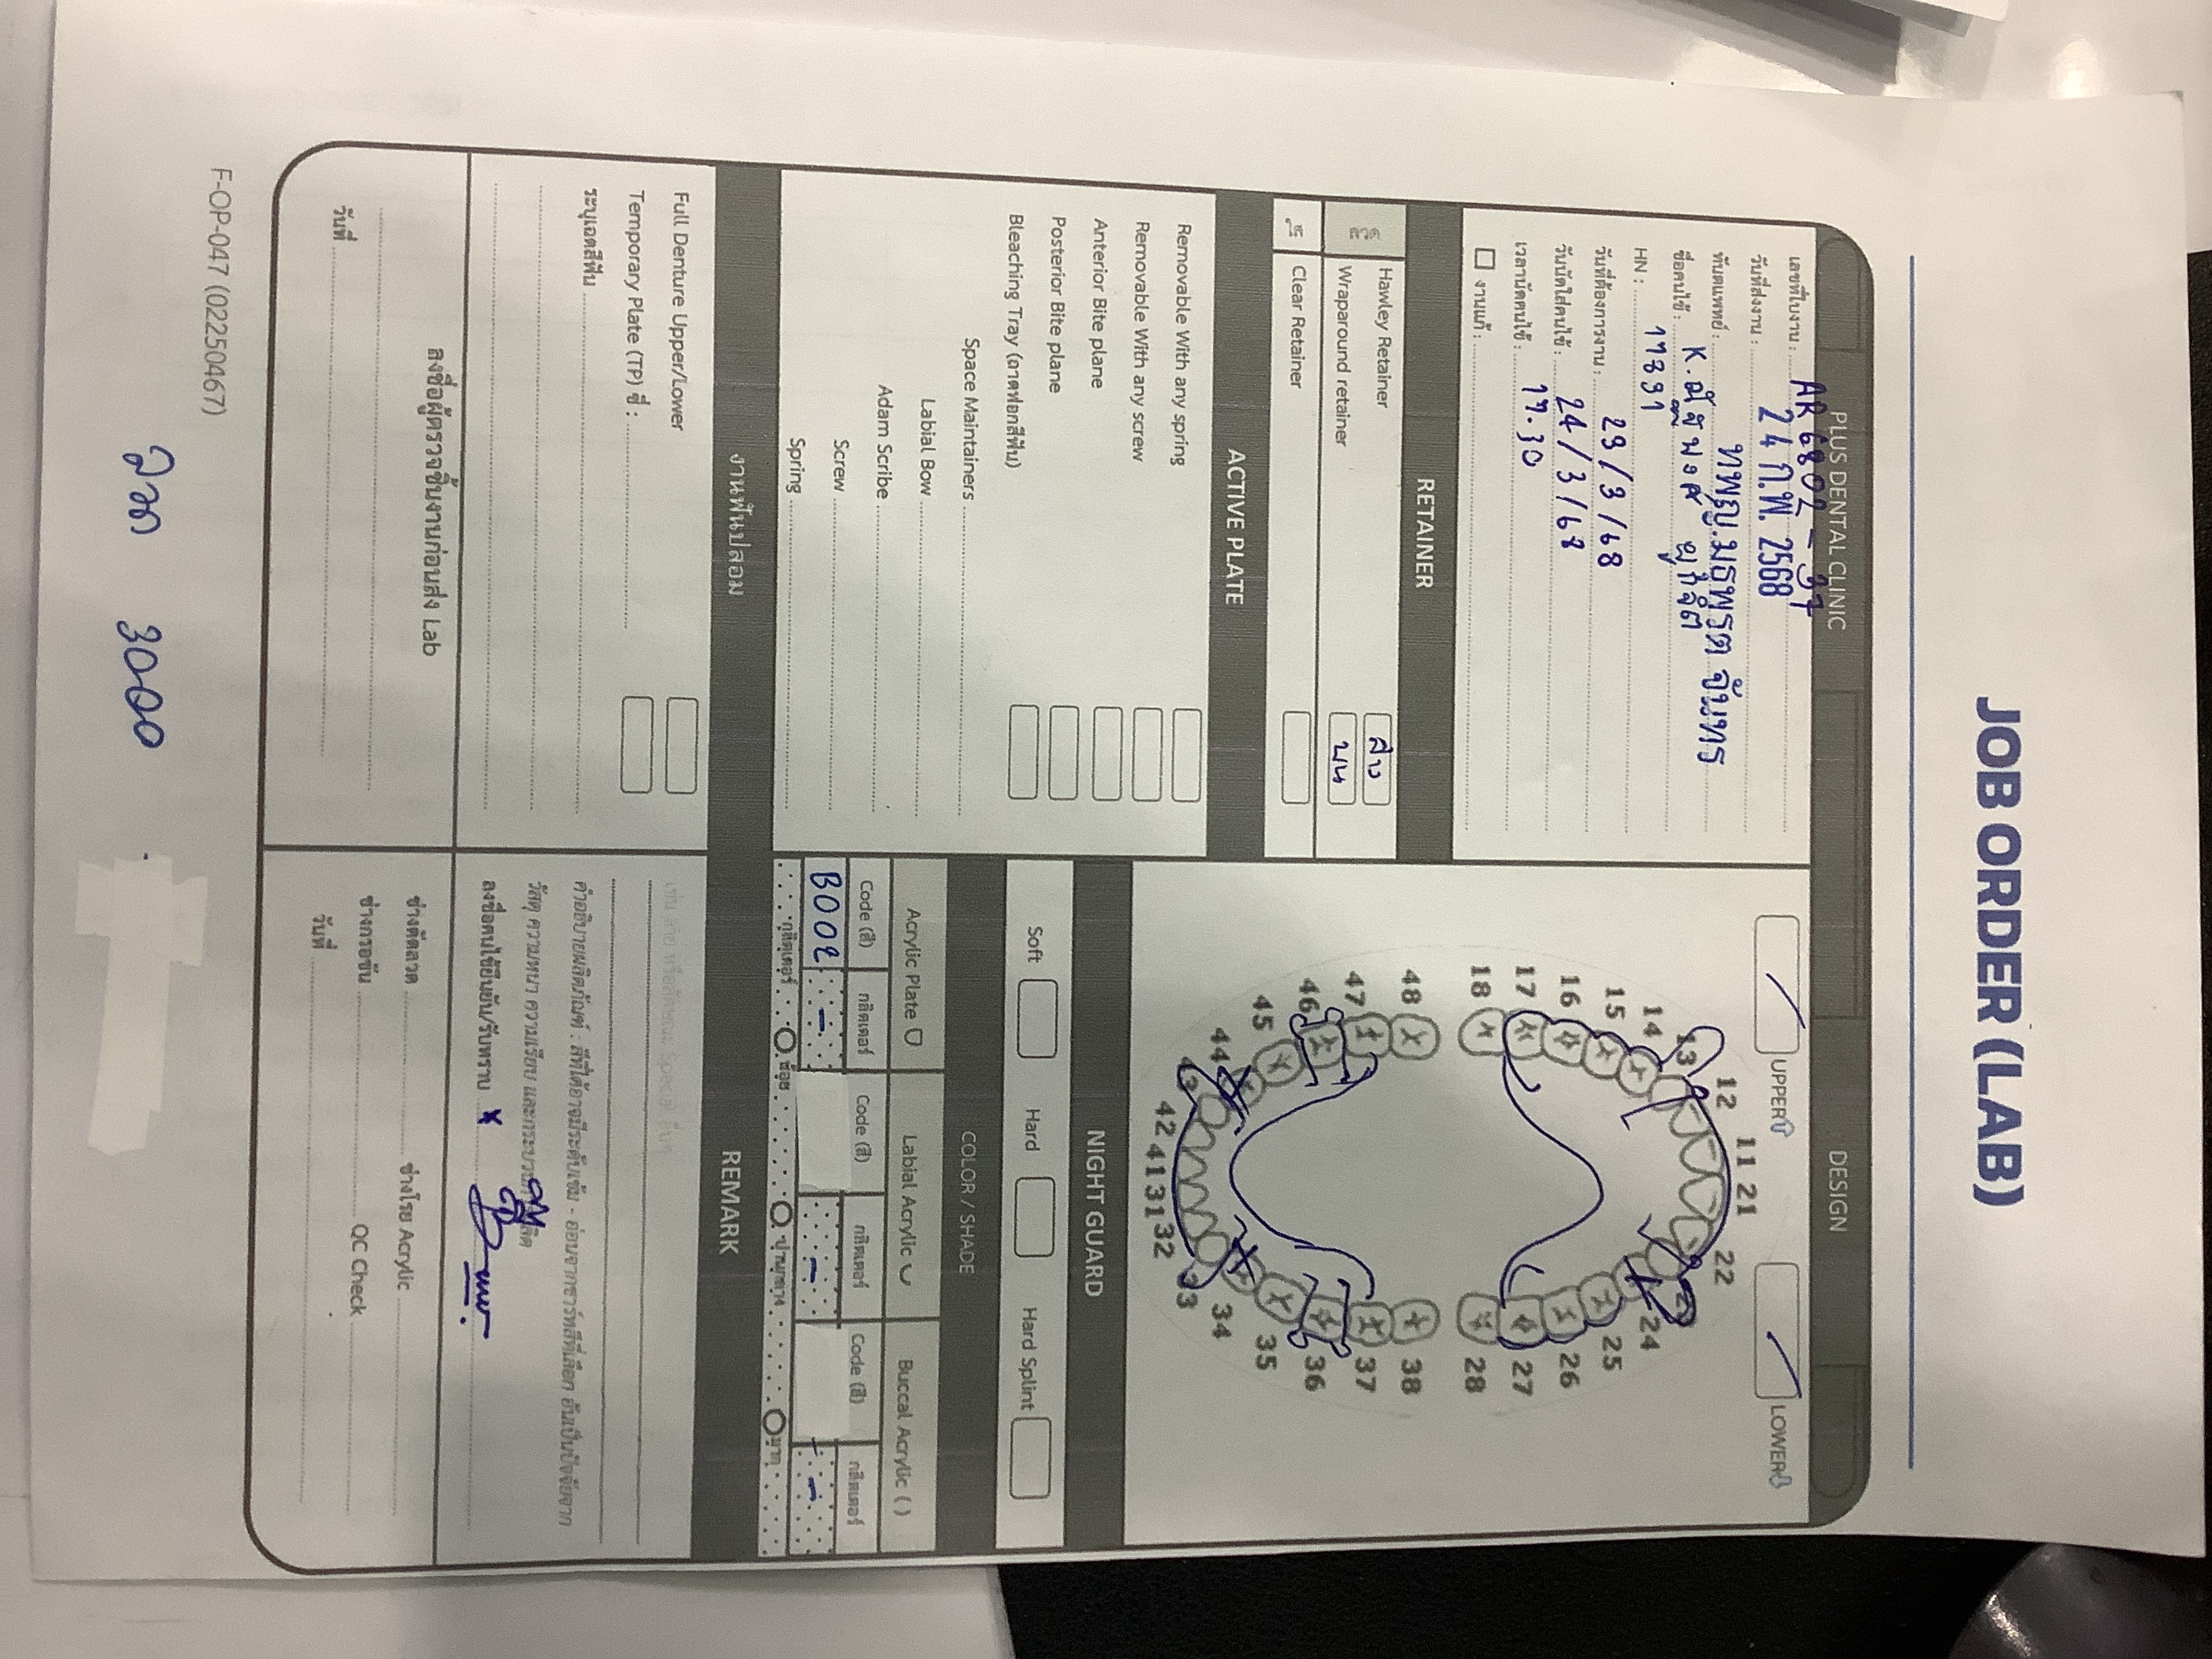 JOB ORDER (LAB)
PLUS DENTAL CLINIC
เลขที่ใบงาน : AR 6802 - 37
วันที่ส่งงาน : 24 ก.พ. 2568
ทันตแพทย์ : ทพญ.มธุพรต จันทร
ชื่อคนไข้ : K. ณัฐพงศ์ ผูกจิต
HN : 17831
วันที่ต้องการงาน : 23/3/68
วันนัดใส่คนไข้ : 24/3/68
เวลานัดคนไข้ : 17.30
งานแก้ :
DESIGN
UPPER
LOWER
11 21
12 22
13
14 24
15 25
16 26
17 27
18 28
48 38
47 37
46 36
45 35
44 34
43 33
42 41 31 32
RETAINER
ลวด
Hawley Retainer ล่าง
Wraparound retainer บน
ใส
Clear Retainer
ACTIVE PLATE
Removable With any spring
Removable With any screw
Anterior Bite plane
Posterior Bite plane
Bleaching Tray (ถาดฟอกสีฟัน)
Space Maintainers
Labial Bow
Adam Scribe
Screw
Spring
NIGHT GUARD
Soft Hard Hard Splint
COLOR / SHADE
Acrylic Plate Labial Acrylic Buccal Acrylic ( )
Code (สี) กลิตเตอร์ Code (สี) กลิตเตอร์ Code (สี) กลิตเตอร์
B002 - - -
กลิตเตอร์ น้อย ปานกลาง มาก
งานฟันปลอม
Full Denture Upper/Lower
Temporary Plate (TP) ซี่ :
ระบุเฉดสีฟัน
REMARK
เช่น ลาย หรือลักษณะ Special อื่นๆ
คำอธิบายผลิตภัณฑ์ : สีที่ได้อาจมีระดับเข้ม - อ่อนจากชาร์ทสีที่เลือก อันเป็นปัจจัยจาก
วัสดุ ความหนา ความเรียบ และกระบวนการผลิต
ลงชื่อคนไข้ยืนยัน/รับทราบ x
ลงชื่อผู้ตรวจชิ้นงานก่อนส่ง Lab
วันที่
ช่างดัดลวด ช่างโรย Acrylic
ช่างกรอขัน QC Check
วันที่
F-OP-047 (02250467)
ลวด 3000